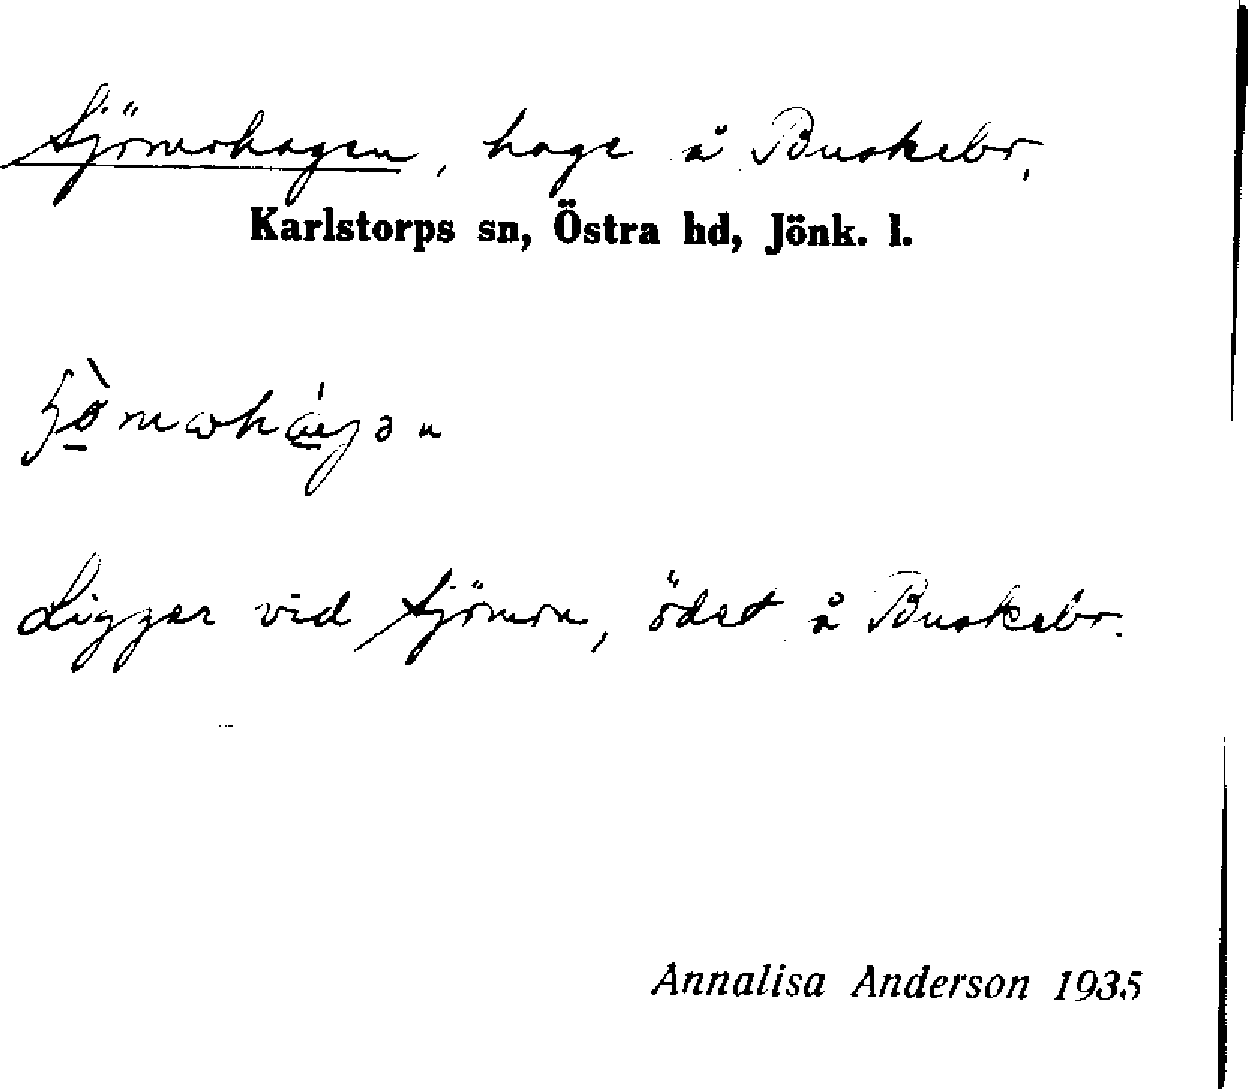 Sjömohagen, hage å Buskebo,
Karlstorps sn, Östra hd, Jönk. l.
Ligger vid Sjömon, ödet å Buskebo.
Annalisa Anderson 1935